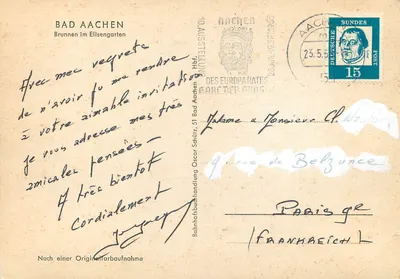 BAD AACHEN
Brunnen im Elisengarten
Avec mes regrets
de n'avoir pu me rendre
à votre aimable invitation
je vous adresse mes très
amicales pensées —
A très bientôt
Cordialement
Nach einer Originalfarbaufnahme
Bahnhofbuchhandlung Oscar Schütz, 51 Bad Aachen, Hbf.
AACHEN
10. AUSSTELLUNG
DES EUROPARATES
KARL DER GROSSE
AACHEN
23.5.
DEUTSCHE BUNDESPOST
15
Madame & Monsieur Ch.
rue de Belzunce
Paris 9e
(FRANKREICH)